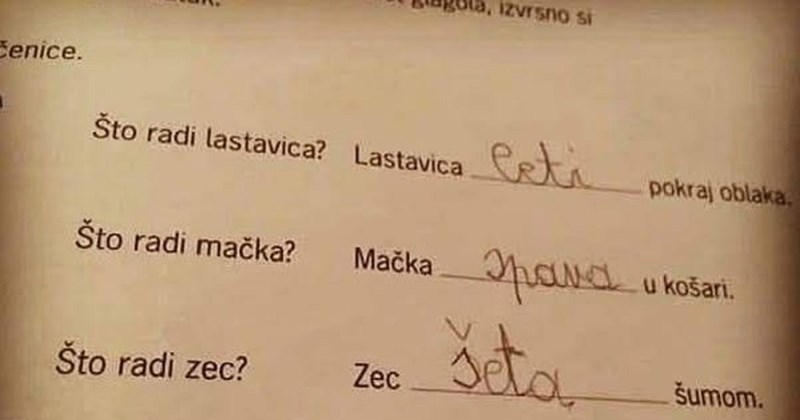 glagola, izvrsno si
čenice.
Što radi lastavica? Lastavica leti pokraj oblaka.
Što radi mačka? Mačka spava u košari.
Što radi zec? Zec šeta šumom.